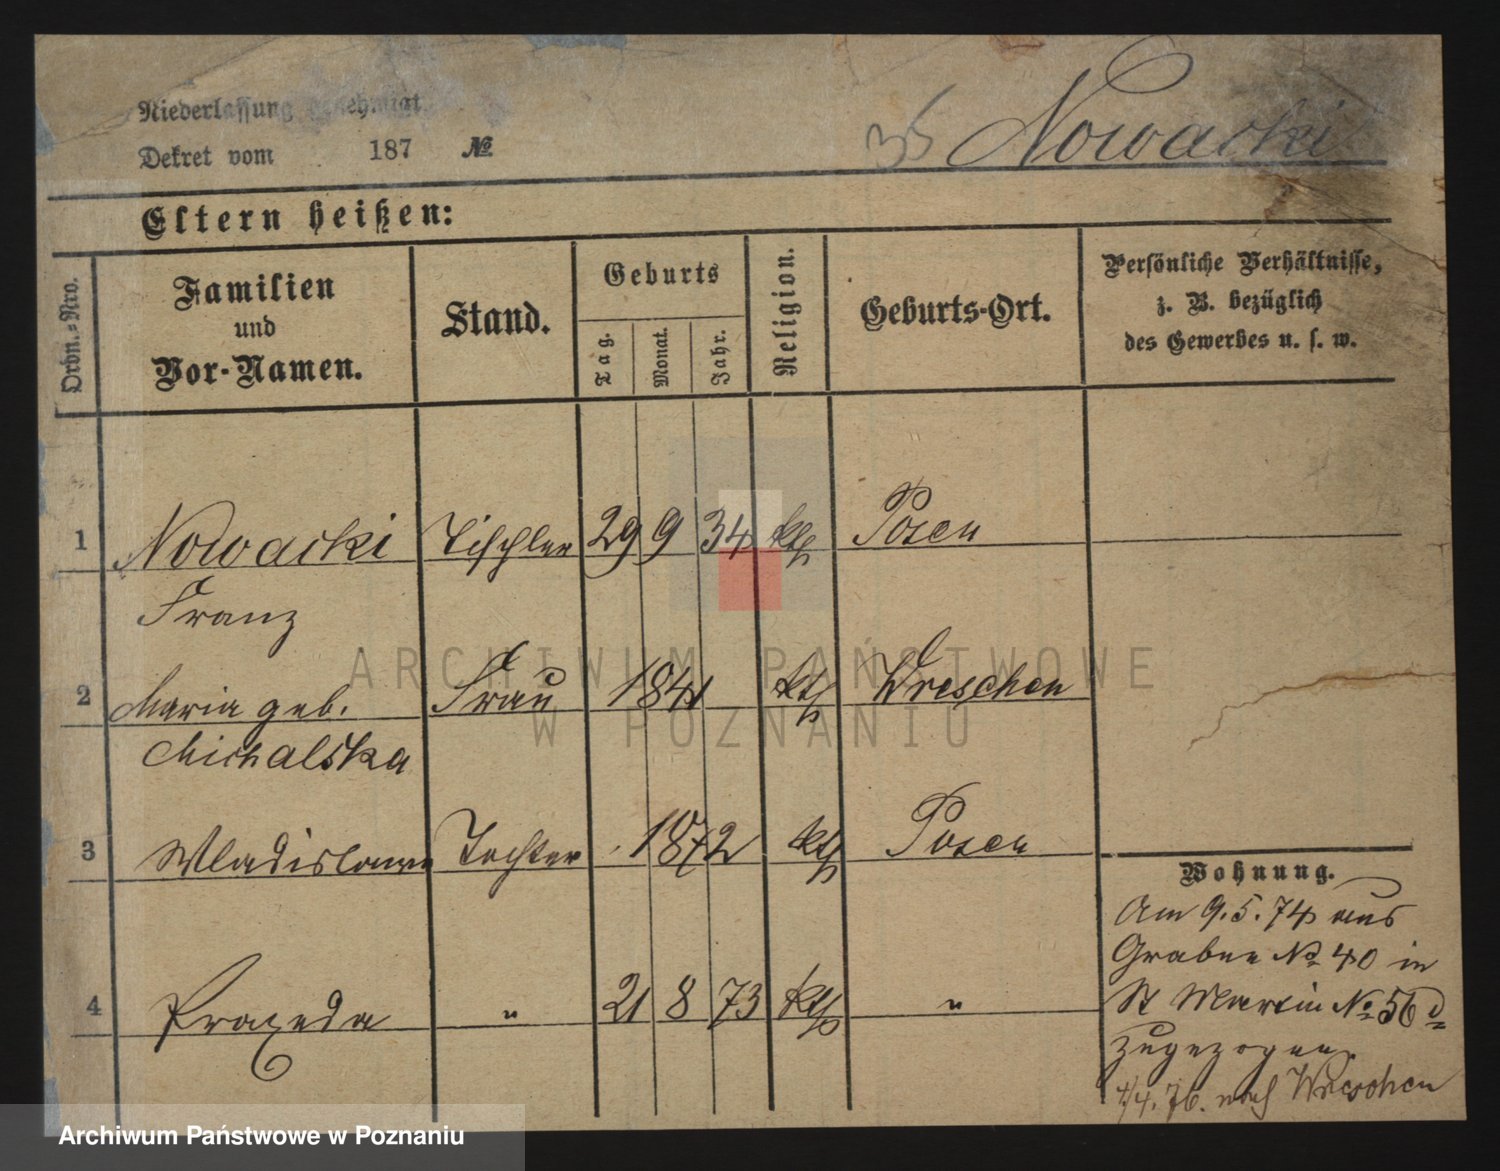 Niederlassung genehmigt
Dekret vom 187 №
35 Nowacki
Eltern heißen:
Ordn.=Nro.
Familien
und
Vor-Namen.
Stand.
Geburts
Tag.
Monat.
Jahr.
Religion.
Geburts-Ort.
Persönliche Verhältnisse,
z. B. bezüglich
des Gewerbes u. s. w.
1 Nowacki Tischler 29 9 34 kth Posen
Franz
2 Maria geb. Frau 1841 kth Wreschen
Michalska
3 Wladislawa Tochter 1872 kth Posen
4 Praxeda " 21 8 73 kth "
Wohnung.
Am 9.5.74 aus
Graben № 40 in
St Martin № 56 d
zugezogen.
4/4.76. nach Wreschen
ARCHIWUM PAŃSTWOWE
W POZNANIU
Archiwum Państwowe w Poznaniu